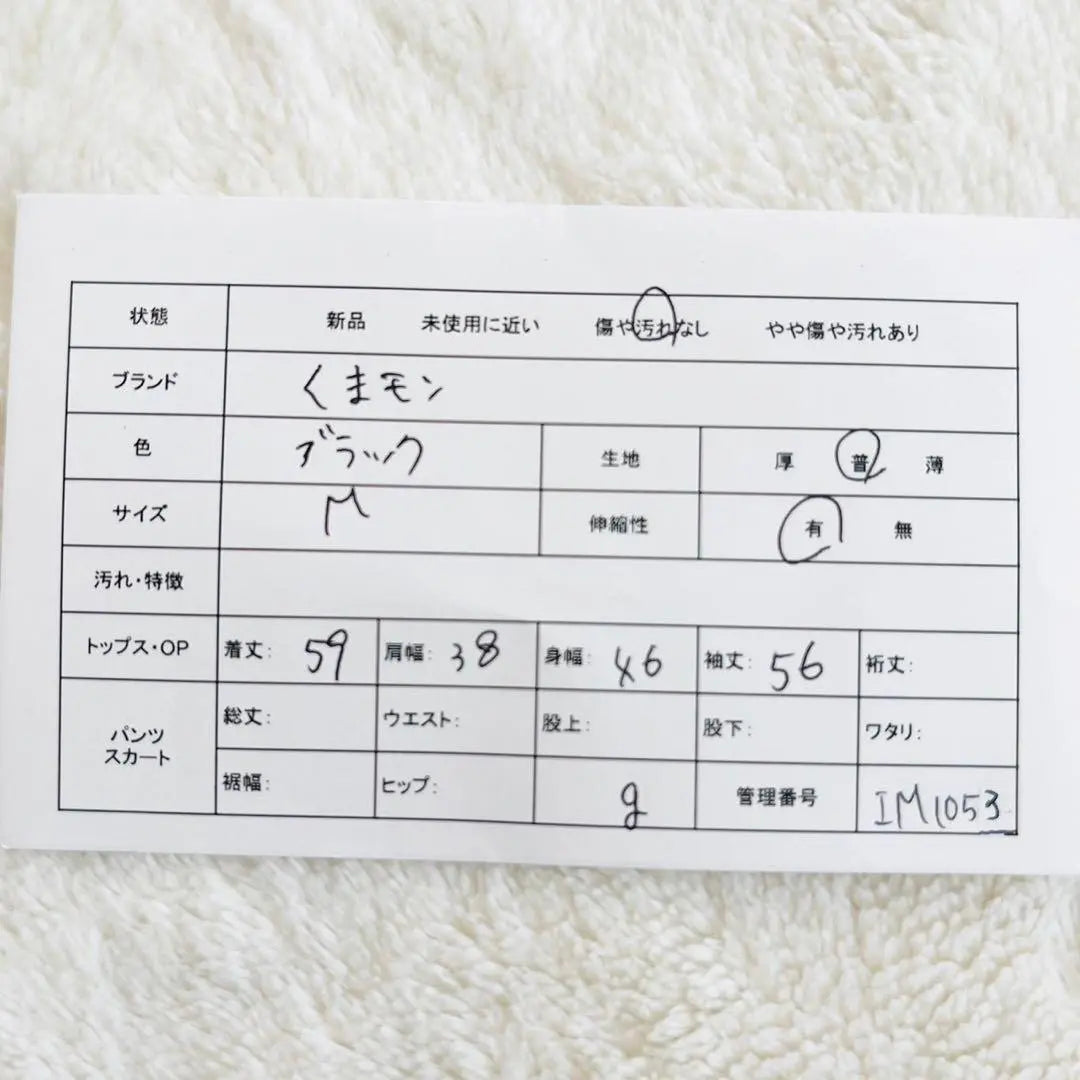 状態 新品 未使用に近い 傷や汚れなし やや傷や汚れあり
ブランド くまモン
色 ブラック 生地 厚 普 薄
サイズ M 伸縮性 有 無
汚れ・特徴
トップス・OP 着丈: 59 肩幅: 38 身幅: 46 袖丈: 56 裄丈:
パンツ
スカート
総丈: ウエスト: 股上: 股下: ワタリ:
裾幅: ヒップ: g 管理番号 IM1053